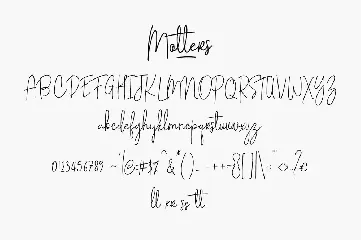 Molters
ABCDEFGHIJKLMNOPQRSTUVWXYZ
abcdefghijklmnopqrstuvwxyz
0123456789
ll rr ss tt